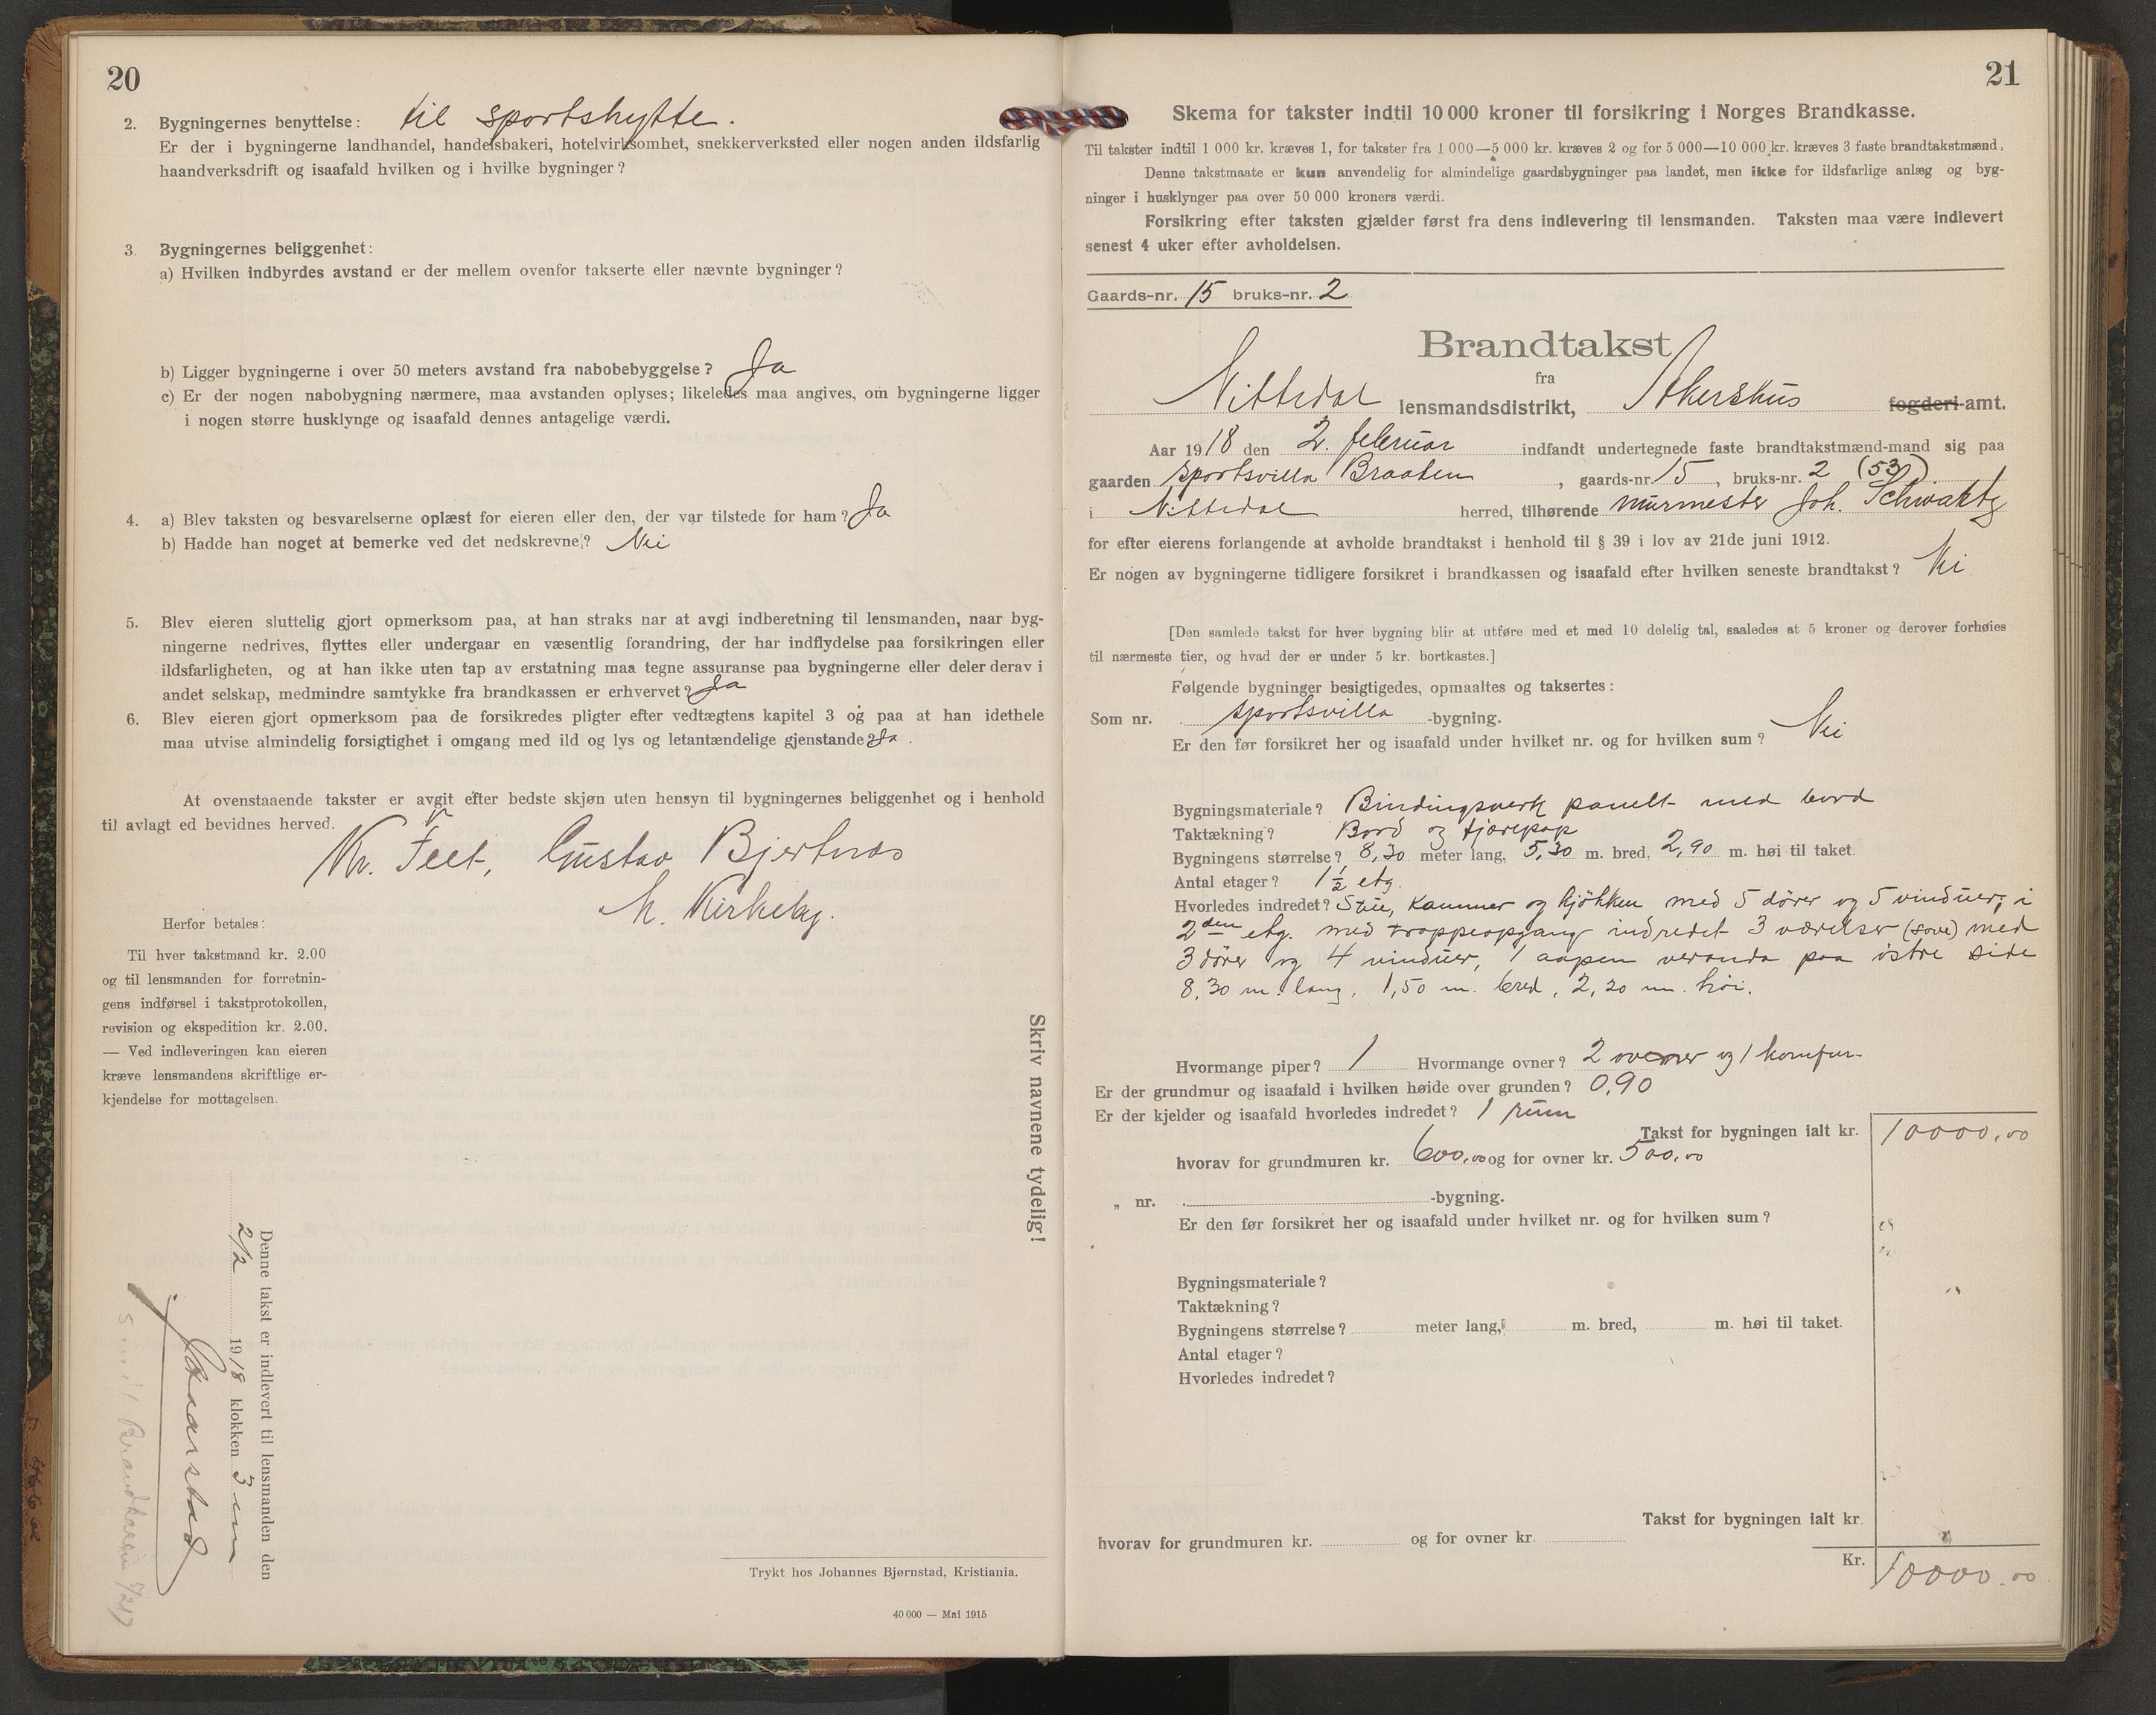 20
2. Bygningernes benyttelse: til sportshytte.
Er der i bygningerne landhandel, handelsbakeri, hotelvirksomhet, snekkerverksted eller nogen anden ildsfarlig
haandverksdrift og isaafald hvilken og i hvilke bygninger?
3. Bygningernes beliggenhet:
a) Hvilken indbyrdes avstand er der mellem ovenfor takserte eller nævnte bygninger?
b) Ligger bygningerne i over 50 meters avstand fra nabobebyggelse? Ja
c) Er der nogen nabobygning nærmere, maa avstanden oplyses; likeledes maa angives, om bygningerne ligger
i nogen større husklynge og isaafald dennes antagelige værdi.
4. a) Blev taksten og besvarelserne oplæst for eieren eller den, der var tilstede for ham? Ja
b) Hadde han noget at bemerke ved det nedskrevne? Nei
5. Blev eieren sluttelig gjort opmerksom paa, at han straks har at avgi indberetning til lensmanden, naar byg-
ningerne nedrives, flyttes eller undergaar en væsentlig forandring, der har indflydelse paa forsikringen eller
ildsfarligheten, og at han ikke uten tap av erstatning maa tegne assuranse paa bygningerne eller deler derav i
andet selskap, medmindre samtykke fra brandkassen er erhvervet? Ja
6. Blev eieren gjort opmerksom paa de forsikredes pligter efter vedtægtens kapitel 3 og paa at han idethele
maa utvise almindelig forsigtighet i omgang med ild og lys og letantændelige gjenstande? Ja.
At ovenstaaende takster er avgit efter bedste skjøn uten hensyn til bygningernes beliggenhet og i henhold
til avlagt ed bevidnes herved.
Kr. Feet, Gustav Bjertnæs
M. Kirkeby.
Herfor betales:
Til hver takstmand kr. 2.00
og til lensmanden for forretnin-
gens indførsel i takstprotokollen,
revision og ekspedition kr. 2.00.
— Ved indleveringen kan eieren
kræve lensmandens skriftlige er-
kjendelse for mottagelsen.
Skriv navnene tydelig!
Denne takst er indlevert til lensmanden den
2/2 1918 klokken 3 em
Trykt hos Johannes Bjørnstad, Kristiania.
40 000 — Mai 1915
21
Skema for takster indtil 10 000 kroner til forsikring i Norges Brandkasse.
Til takster indtil 1 000 kr. kræves 1, for takster fra 1 000—5 000 kr. kræves 2 og for 5 000—10 000 kr. kræves 3 faste brandtakstmænd,
Denne takstmaate er kun anvendelig for almindelige gaardsbygninger paa landet, men ikke for ildsfarlige anlæg og byg-
ninger i husklynger paa over 50 000 kroners værdi.
Forsikring efter taksten gjælder først fra dens indlevering til lensmanden. Taksten maa være indlevert
senest 4 uker efter avholdelsen.
Gaards-nr. 15 bruks-nr. 2
Brandtakst
fra
Nittedal lensmandsdistrikt, Akershus fogderi-amt.
Aar 1918 den 2. februar indfandt undertegnede faste brandtakstmænd-mand sig paa
gaarden Sportsvilla Braaten, gaards-nr. 15, bruks-nr. 2 (53)
i Nittedal herred, tilhørende murmester Joh. Schwartz
for efter eierens forlangende at avholde brandtakst i henhold til § 39 i lov av 21de juni 1912.
Er nogen av bygningerne tidligere forsikret i brandkassen og isaafald efter hvilken seneste brandtakst? Nei
[Den samlede takst for hver bygning blir at utføre med et med 10 delelig tal, saaledes at 5 kroner og derover forhøies
til nærmeste tier, og hvad der er under 5 kr. bortkastes.]
Følgende bygninger besigtigedes, opmaaltes og taksertes:
Som nr. sportsvilla -bygning.
Er den før forsikret her og isaafald under hvilket nr. og for hvilken sum? Nei
Bygningsmateriale? Bindingsverk panelt med bord
Taktækning? Bord og tjærepap
Bygningens størrelse? 8,30 meter lang, 5,30 m. bred, 2,90 m. høi til taket.
Antal etager? 1 1/2 etg.
Hvorledes indredet? Stue, kammer og kjökken med 5 dører og 5 vinduer; i
2den etg. med trappeopgang indredet 3 værelser (sove) med
3 dører og 4 vinduer, 1 aapen veranda paa østre side
8,30 m. lang, 1,50 m. bred, 2,20 m. høi.
Hvormange piper? 1 Hvormange ovner? 2 ovner og 1 komfur
Er der grundmur og isaafald i hvilken høide over grunden? 0,90
Er der kjelder og isaafald hvorledes indredet? 1 rum
Takst for bygningen ialt kr. 10000,00
hvorav for grundmuren kr. 600,00 og for ovner kr. 500,00
„ nr. -bygning.
Er den før forsikret her og isaafald under hvilket nr. og for hvilken sum?
Bygningsmateriale?
Taktækning?
Bygningens størrelse? meter lang, m. bred, m. høi til taket.
Antal etager?
Hvorledes indredet?
Takst for bygningen ialt kr.
hvorav for grundmuren kr. og for ovner kr.
Kr. 10000.00